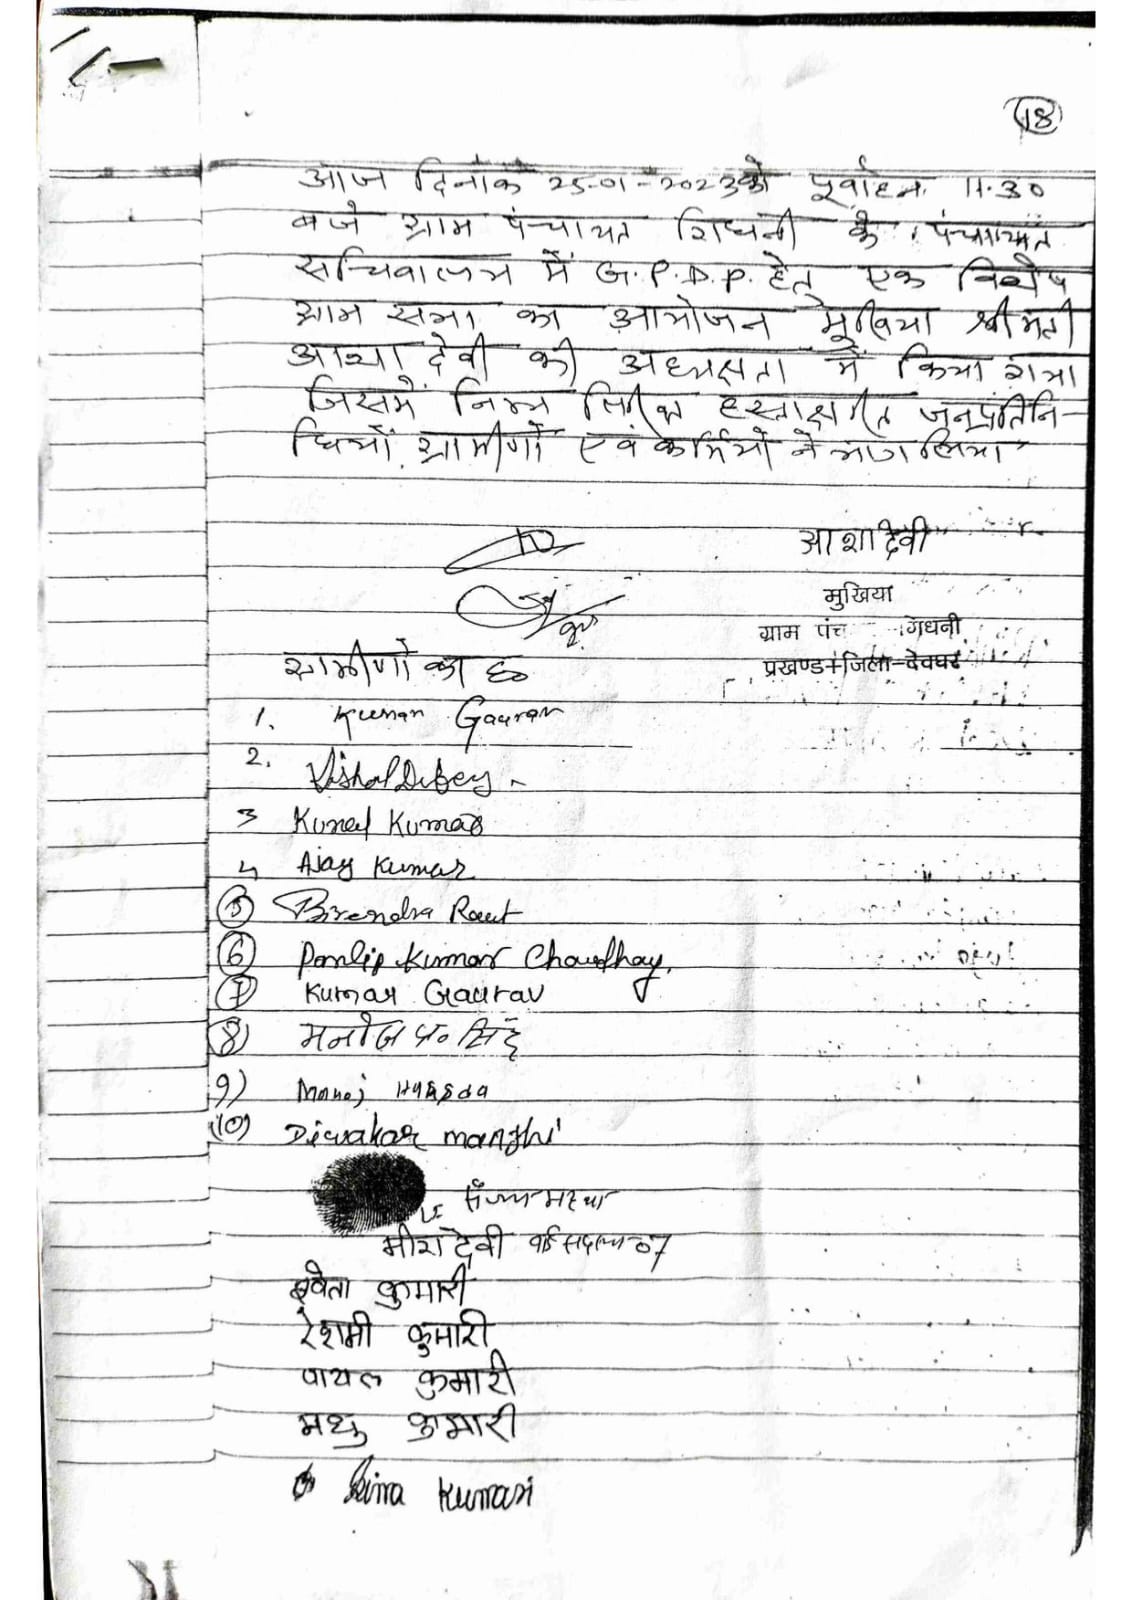 18
आज दिनांक 25-01-2023 को पूर्वाहन 11.30
बजे ग्राम पंचायत गिधनी के पंचायत
सचिवालय में G.P.D.P. हेतु एक विशेष
ग्राम सभा का आयोजन मुखिया श्रीमती
आशा देवी की अध्यक्षता में किया गया
जिसमें निम्न लिखित हस्ताक्षरित जनप्रतिनि-
धियों, ग्रामीणों एवं कर्मियों ने भाग लिया
आशा देवी
मुखिया
ग्राम पंच गिधनी
प्रखण्ड+जिला-देवघर
ग्रामीणों का ह०
1. Kumar Gaurav
2. Vishal Dubey
3 Kunal Kumar
4 Ajay Kumar
5 Birendra Raut
6 Pankip Kumar Choudhay.
7 Kumar Gaurav
8) मनोज प्र० सिंह
9) Manoj Hansda
10) Diwakar manjhi
मीरा देवी वार्ड सदस्य 07
श्वेता कुमारी
रेशमी कुमारी
पायल कुमारी
मधु कुमारी
Rina Kumari